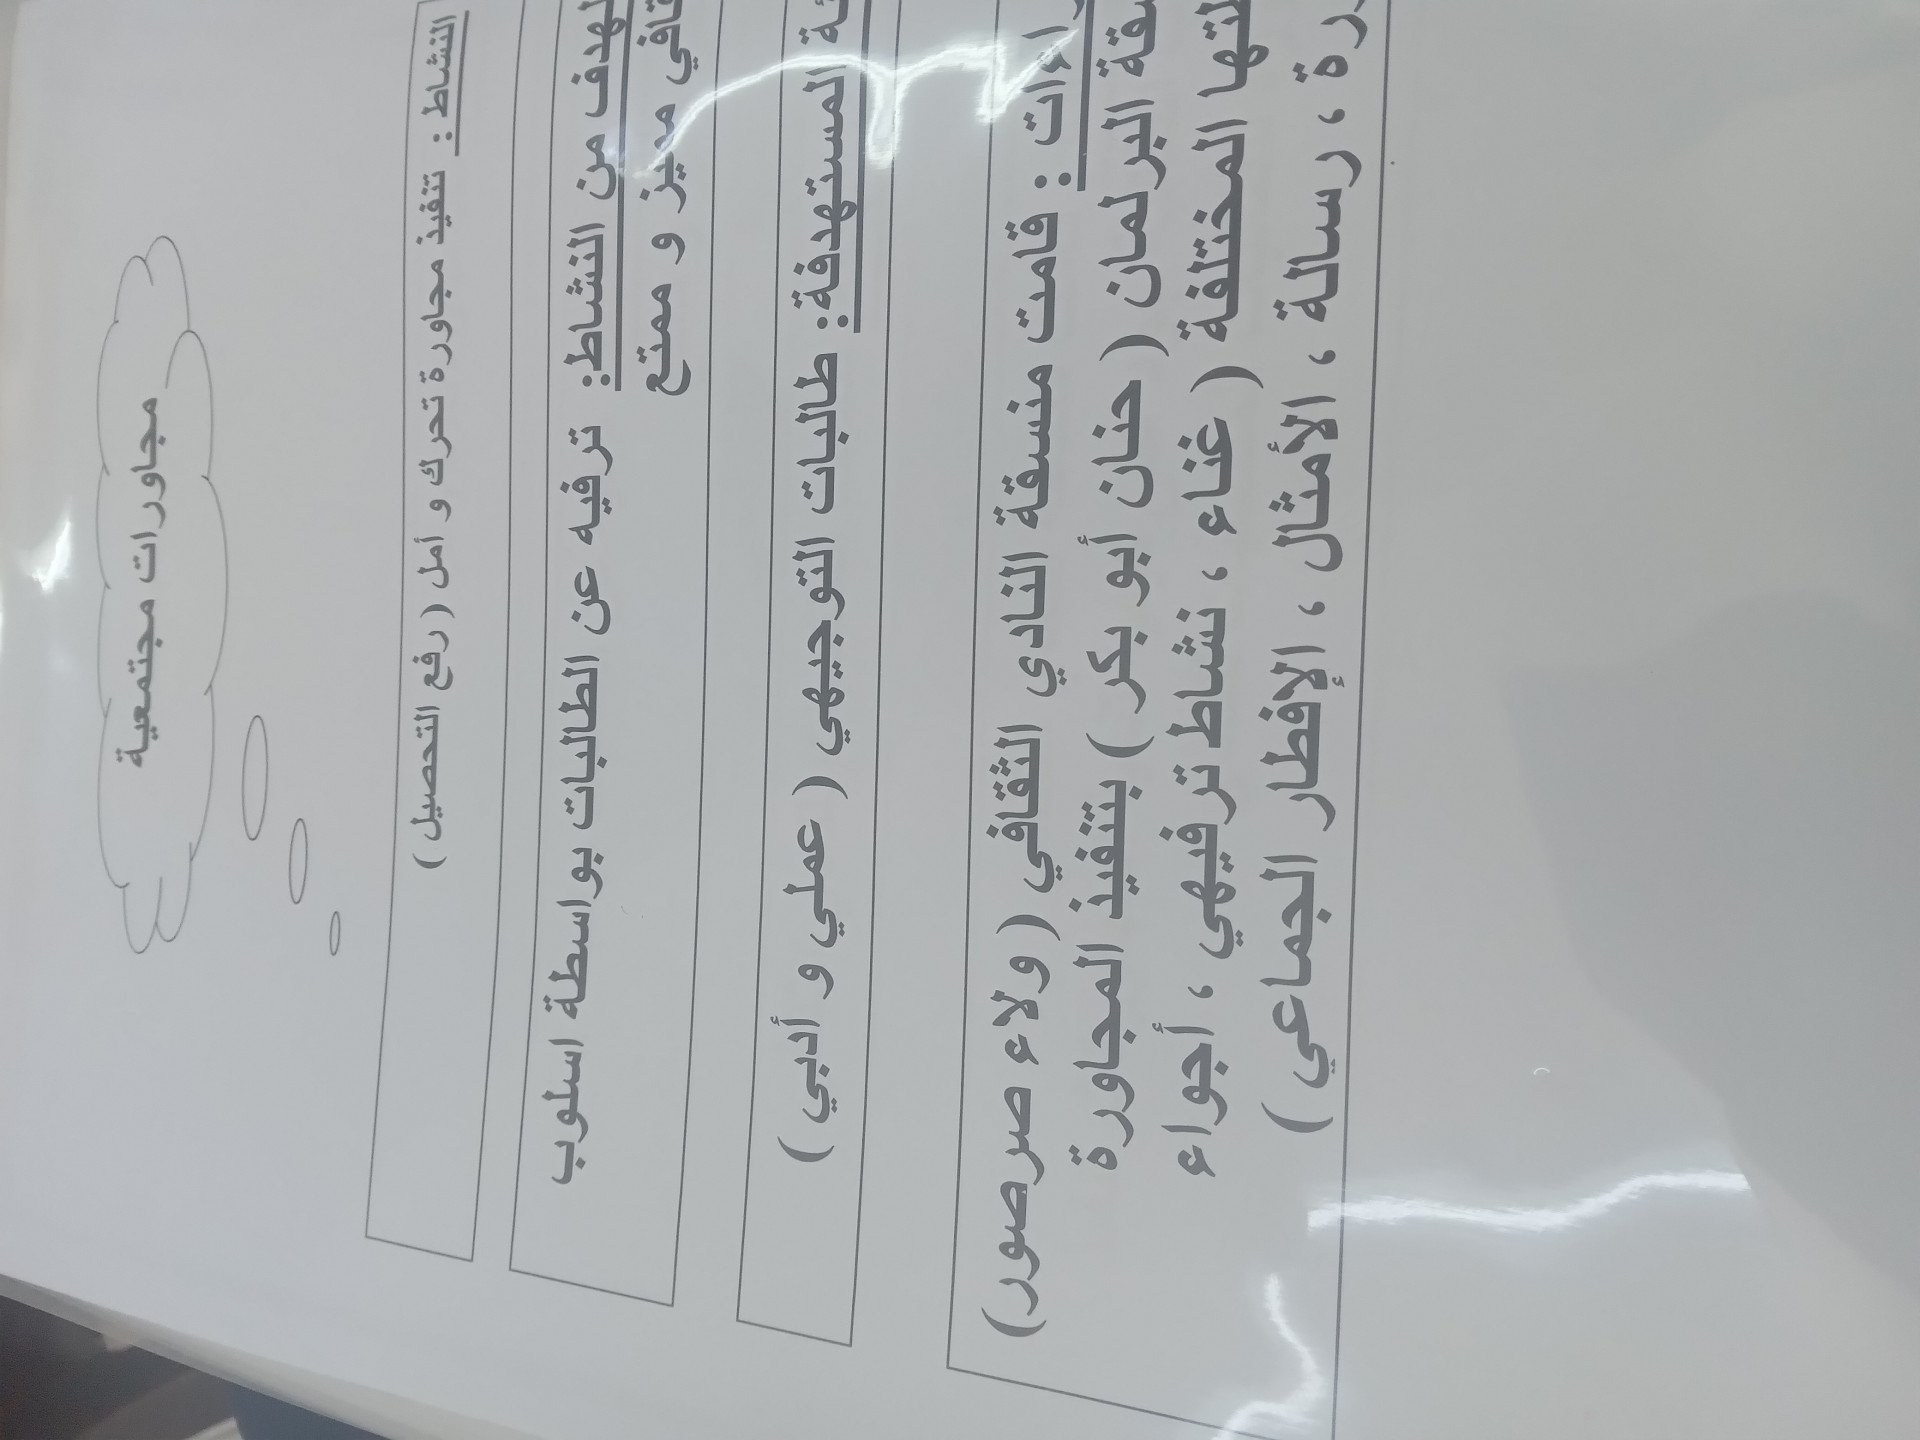 مجاورات مجتمعية
النشاط : تنفيذ مجاورة تحرك و أمل ( رفع التحصيل )
الهدف من النشاط: ترفيه عن الطالبات بواسطة اسلوب
مميز و ممتع
المستهدفة: طالبات التوجيهي ( عملي و أدبي )
قامت منسقة النادي الثقافي ( ولاء صرصور)
البرلمان ( حنان أبو بكر ) بتنفيذ المجاورة
المختلفة ( غناء ، نشاط ترفيهي ، أجواء
، رسالة ، الأمثال ، الإفطار الجماعي )